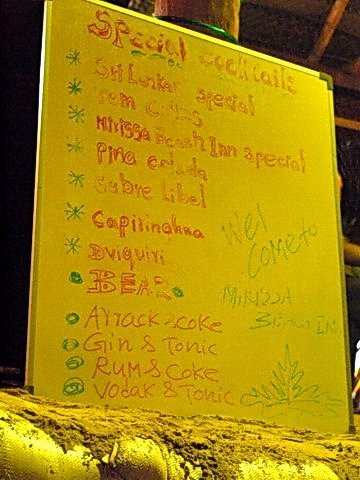 Special cocktails
Sri Lankan special
Tom Collins
Mirissa Beach Inn special
Pina Colada
Subre Libel
Capirinahna
Dviquiri
BEAR
Arrack & coke
Gin & Tonic
RUM & Coke
Vodak & Tonic
Wel
Come to
Mirissa
Beach Inn